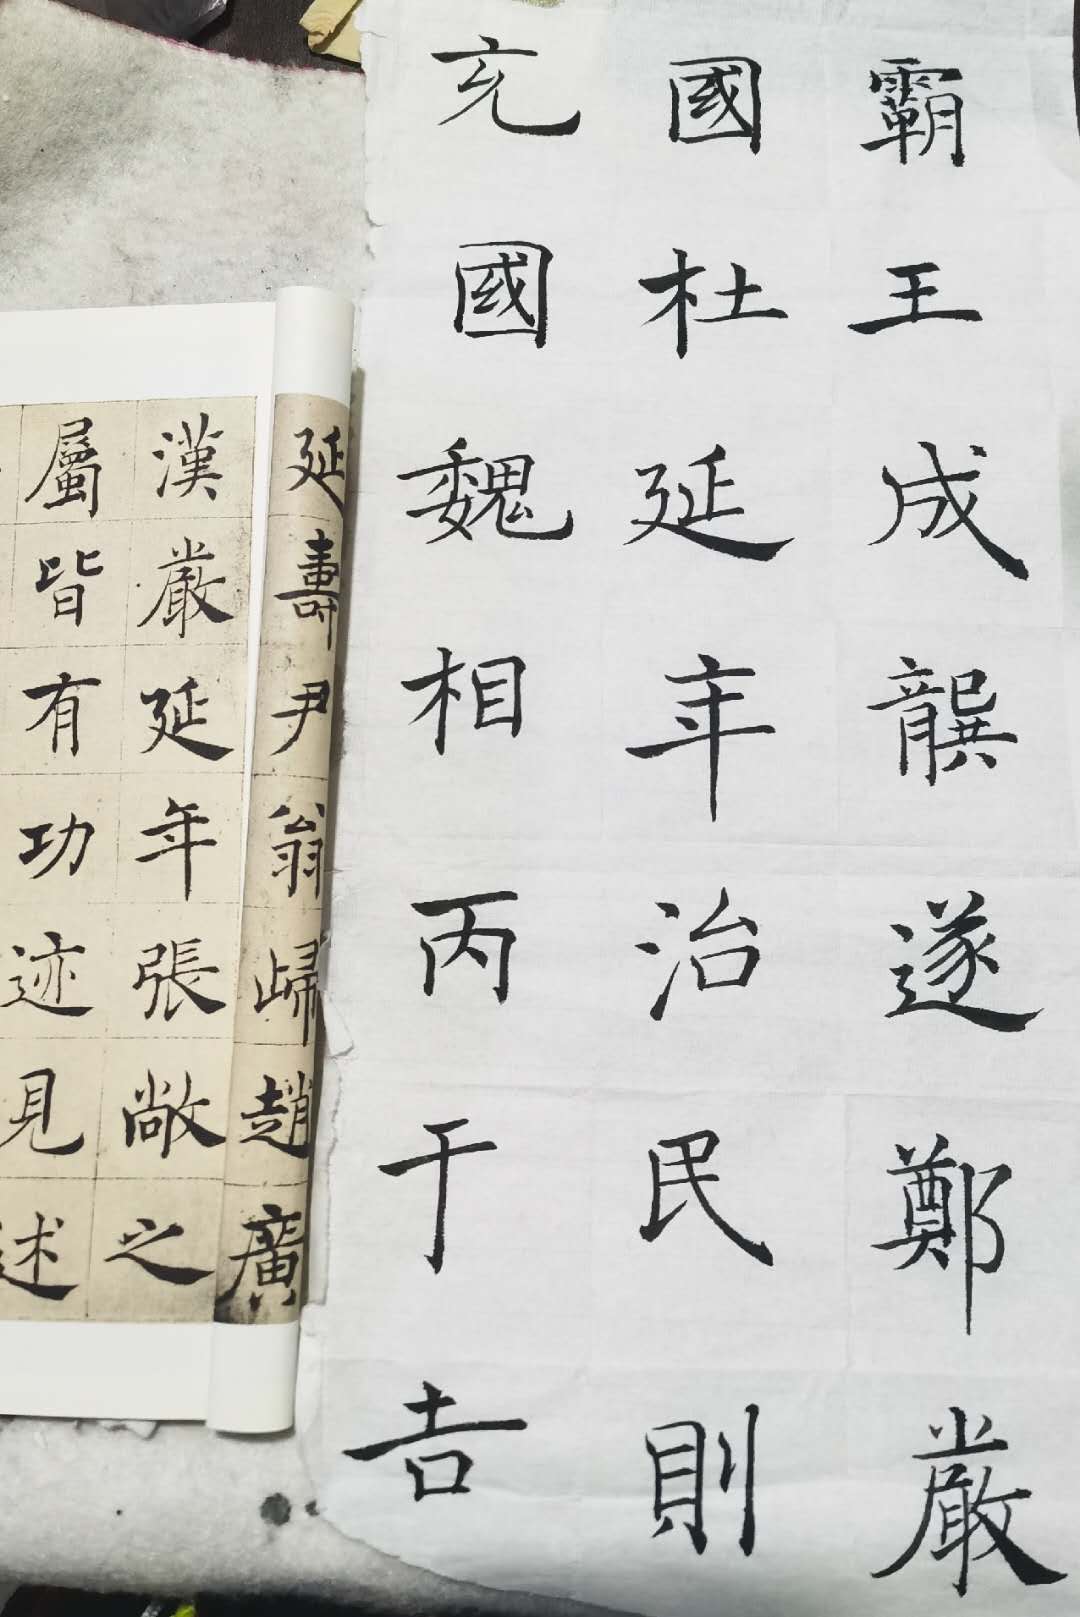 霸王成龔遂鄭嚴
國杜延年治民則
充國魏相丙于吉
延壽尹翁歸趙廣
漢嚴延年張敞之
屬皆有功迹見述